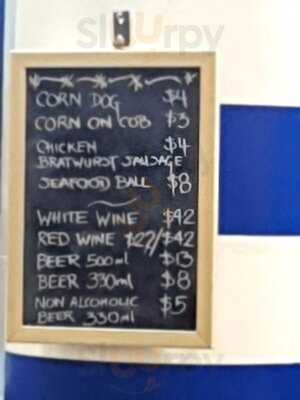 Slurpy
CORN DOG $4
CORN ON COB $3
CHICKEN $4
BRATWURST SAUSAGE
SEAFOOD BALL $8
WHITE WINE $42
RED WINE $22/$42
BEER 500ml $13
BEER 330ml $8
NON ALCOHOLIC $5
BEER 330ml
Slurpy